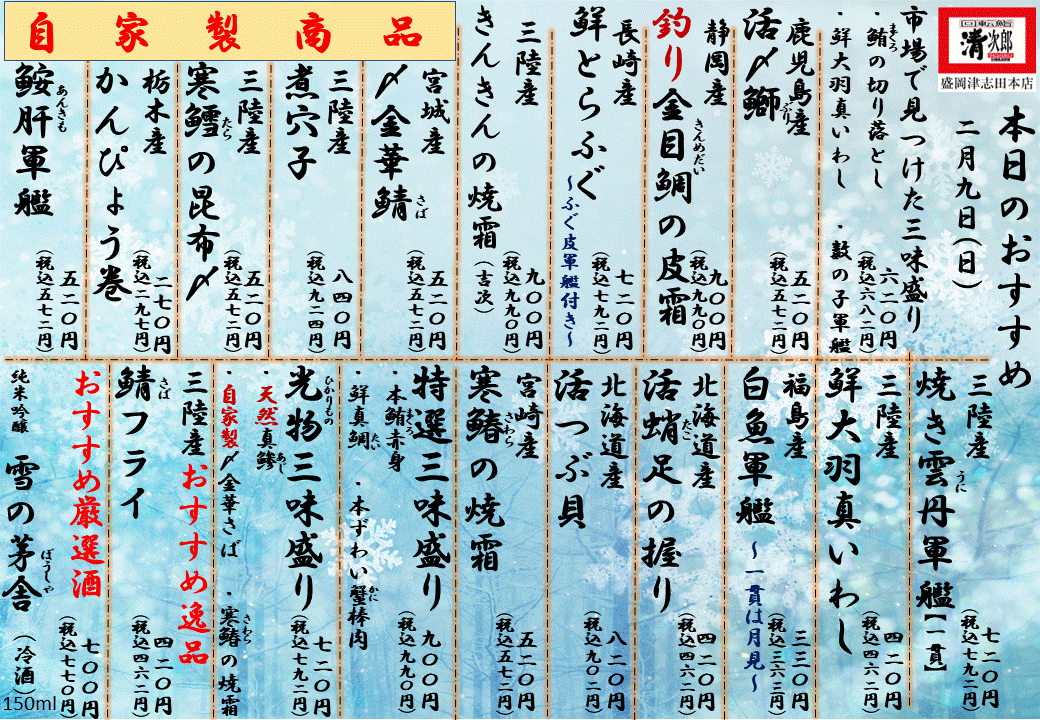 回転鮨
清次郎
盛岡津志田本店
本日のおすすめ
二月九日(日)
市場で見つけた三味盛り
・鮪の切り落とし
まぐろ
・鮮大羽真いわし
・数の子軍艦
六二〇円
(税込六八二円)
鹿児島産
活〆鰤
ぶり
五二〇円
(税込五七二円)
静岡産
釣り金目鯛の皮霜
きんめだい
九〇〇円
(税込九九〇円)
長崎産
鮮とらふぐ
~ふぐ皮軍艦付き~
七二〇円
(税込七九二円)
三陸産
きんきんの焼霜
(吉次)
九〇〇円
(税込九九〇円)
自家製商品
宮城産
〆金華鯖
さば
五二〇円
(税込五七二円)
三陸産
煮穴子
八四〇円
(税込九二四円)
三陸産
寒鱈の昆布〆
たら
五二〇円
(税込五七二円)
栃木産
かんぴょう巻
二七〇円
(税込二九七円)
鮟肝軍艦
あんきも
五二〇円
(税込五七二円)
三陸産
焼き雲丹軍艦【一貫】
うに
七二〇円
(税込七九二円)
三陸産
鮮大羽真いわし
四二〇円
(税込四六二円)
福島産
白魚軍艦
~一貫は月見~
三三〇円
(税込三六三円)
北海道産
活蛸足の握り
たこ
四二〇円
(税込四六二円)
北海道産
活つぶ貝
八二〇円
(税込九〇二円)
宮崎産
寒鰆の焼霜
さわら
五二〇円
(税込五七二円)
特選三味盛り
・本鮪赤身
まぐろ
・鮮真鯛
たい
・本ずわい蟹棒肉
かに
九〇〇円
(税込九九〇円)
光物三味盛り
ひかりもの
・天然真鯵
あじ
・自家製〆金華さば
・寒鰆の焼霜
さわら
七二〇円
(税込七九二円)
おすすめ逸品
三陸産
鯖フライ
さば
四二〇円
(税込四六二円)
おすすめ厳選酒
純米吟醸
雪の茅舎
ぼうしゃ
(冷酒)
150ml
七〇〇円
(税込七七〇円)